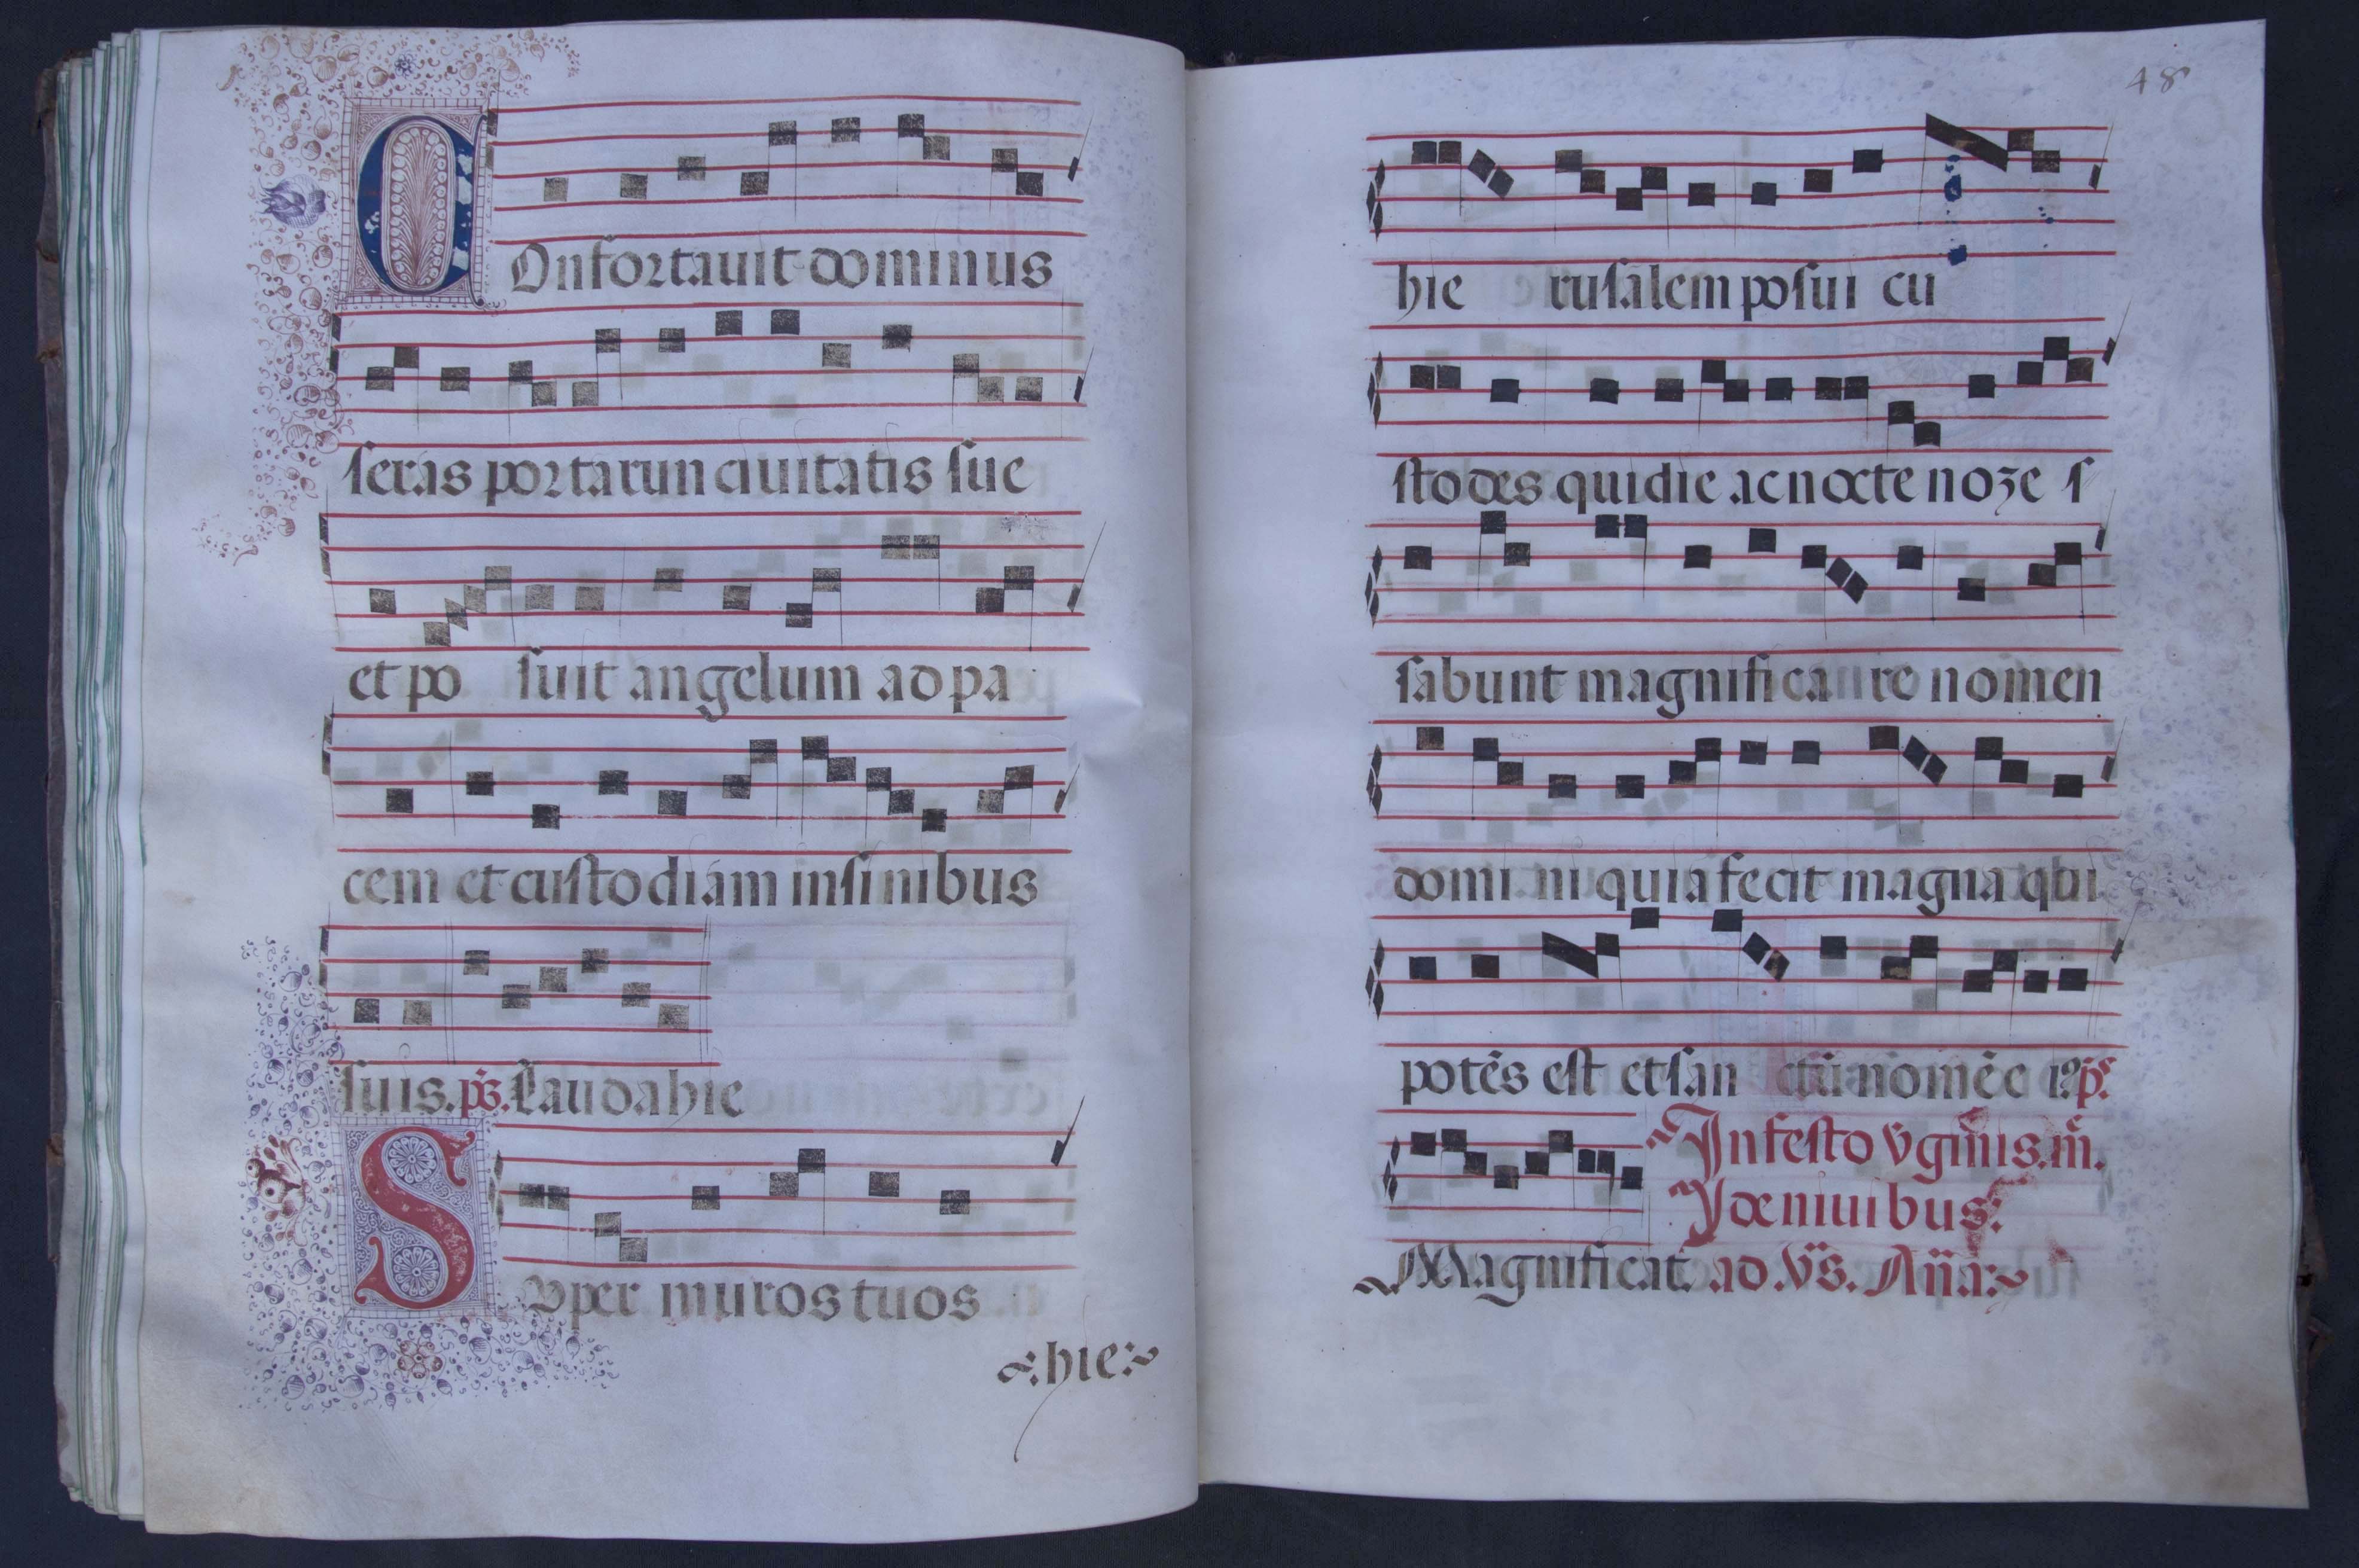 COnfortauit dominus
seras portarun ciuitatis sue
et po suit angelum ad pa
cem et custodiam in finibus
suis. ps. Lauda hie
SVper muros tuos
hie
48
hie rusalem posui cu
stodes qui die ac nocte non ce s
sabunt magnificare nomen
domini ni quia fecit magna qui
potẽs est et san ctũ nomẽ e iꝰ. ps.
In festo vginis. m̃.
de niuibus:
Magnificat. ad .Vs. Añа: